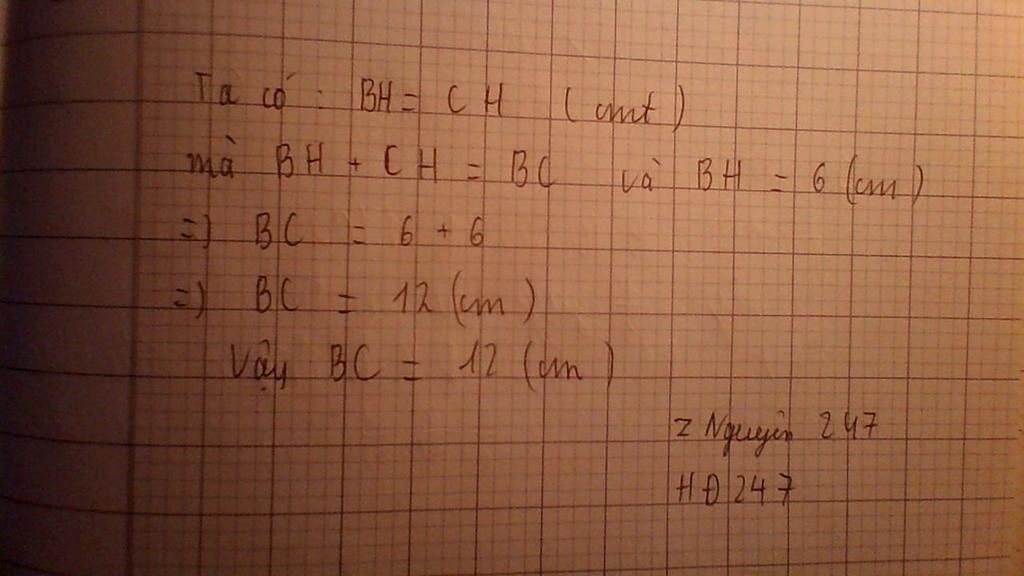 Ta có : BH = CH (cmt)
mà BH + CH = BC và BH = 6 (cm)
=) BC = 6 + 6
=) BC = 12 (cm)
Vậy BC = 12 (cm)
z Nguyễn 247
HĐ 247